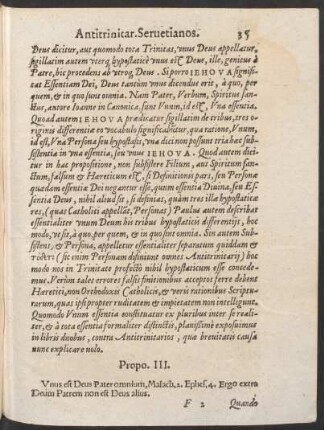 Antitrinitar. Seruetianos. 35
Deus dicitur, aut quomodo tota Trinitas, vnus Deus appellatur,
sigillatim autem vterq; hypostaticè vnus est Deus, ille, genitus à
Patre, hic procedens ab vtroq; Deus. Si porrò IEHOVA signifi-
cat Essentiam Dei, Deus tantùm vnus dicendus erit, à quo, per
quem, & in quo sunt omnia. Nam Pater, Verbum, Spiritus san-
ctus, autore Ioanne in Canonica, sunt Vnum, id est, Vna essentia.
Quod autem IEHOVA prædicatur sigillatim de tribus, tres o-
riginis differentiæ eo vocabulo significabitur, qua ratione, Vnum,
id est, Vna Persona seu hypostasis, vna dici non possunt tria hæc sub-
sistentia in vna essentia, seu vnus IEHOVA. Quod autem dici-
tur in hac prepositione, non subsistere Filium, aut Spiritum san-
ctum, falsum & Hæreticum est, si Definitionis pars, seu Personæ
quædam essentia Dei negantur esse, quùm essentia Diuina, seu Es-
sentia Deus, nihil aliud sit, si definias, quàm tres illæ hypostaticæ
res, (quæ Catholici appellãt, Personas) Paulus autem describat
essentialiter vnum Deum his tribus hypostaticis differentijs, hoc
modo, vt sit, à quo, per quem, & in quo sint omnia. Sin autem Sub-
sistens, & Persona, appelletur essentialiter separatum quiddam &
(sic enim Personam definiunt omnes Antitrinitarij) hoc
modo nos in Trinitate profectò nihil hypostaticum esse concede-
mus. Verùm tales errores falsis finitionibus acceptos ferre debent
Hæretici, non Orthodoxis Catholicis, & veris rationibus Scriptu-
rarum, quas ipsi propter ruditatem & impietatem non intelligunt.
Quomodo Vnum essentia constituatur ex pluribus inter se reali-
ter, & à tota essentia formaliter distinctis, planissimè exposuimus
in libris duobus, contra Antitrinitarios, qua breuitatis causa
nunc explicare nolo.
Propo. III.
Vnus est Deus Pater omnium, Malach. 2. Ephes. 4. Ergo extra
Deum Patrem non est Deus alius.
F 2 Quando